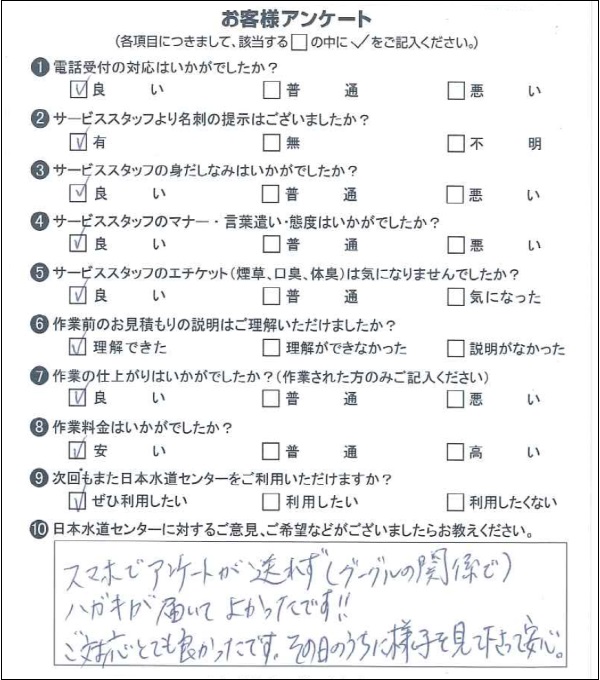 お客様アンケート
(各項目につきまして、該当する□の中に✓をご記入ください。)
❶電話受付の対応はいかがでしたか?
☑良い □普通 □悪い
❷サービススタッフより名刺の提示はございましたか?
☑有 □無 □不明
❸サービススタッフの身だしなみはいかがでしたか?
☑良い □普通 □悪い
❹サービススタッフのマナー・言葉遣い・態度はいかがでしたか?
☑良い □普通 □悪い
❺サービススタッフのエチケット(煙草、口臭、体臭)は気になりませんでしたか?
☑良い □普通 □気になった
❻作業前のお見積もりの説明はご理解いただけましたか?
☑理解できた □理解ができなかった □説明がなかった
❼作業の仕上がりはいかがでしたか?(作業された方のみご記入ください)
☑良い □普通 □悪い
❽作業料金はいかがでしたか?
☑安い □普通 □高い
❾次回もまた日本水道センターをご利用いただけますか?
☑ぜひ利用したい □利用したい □利用したくない
❿日本水道センターに対するご意見、ご希望などがございましたらお教えください。
スマホでアンケートが送れず(グーグルの関係で)
ハガキが届いてよかったです!!
ご対応とても良かったです。その日のうちに様子を見て下さって安心。